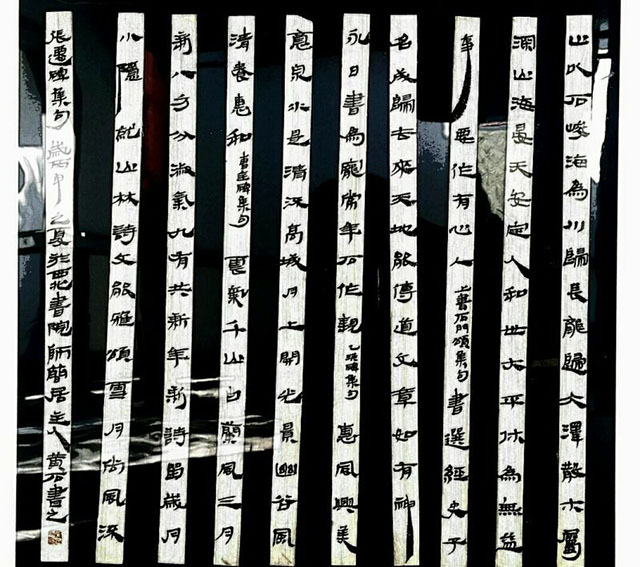 山以石峻海為川歸長龍歸大澤散木屬
山海晏天安定人和世太平休為無益
事 要作有心人 上書石門頌集句 書選經史子
名成歸去來天地能傳道文章如有神
永日書為寵常年石作親 乙瑛碑集句 惠風興美
意泉水是清流高城月上開光景幽谷風
清養惠和 曹全碑集句 雲氣千山白蘭風三月
新八方分淑氣九有共新年新詩留歲月
小隱就山林詩文能雅頌雪月尚風流
張遷碑集句 歲丙申之夏於西北書院師簡居主人黃石書之